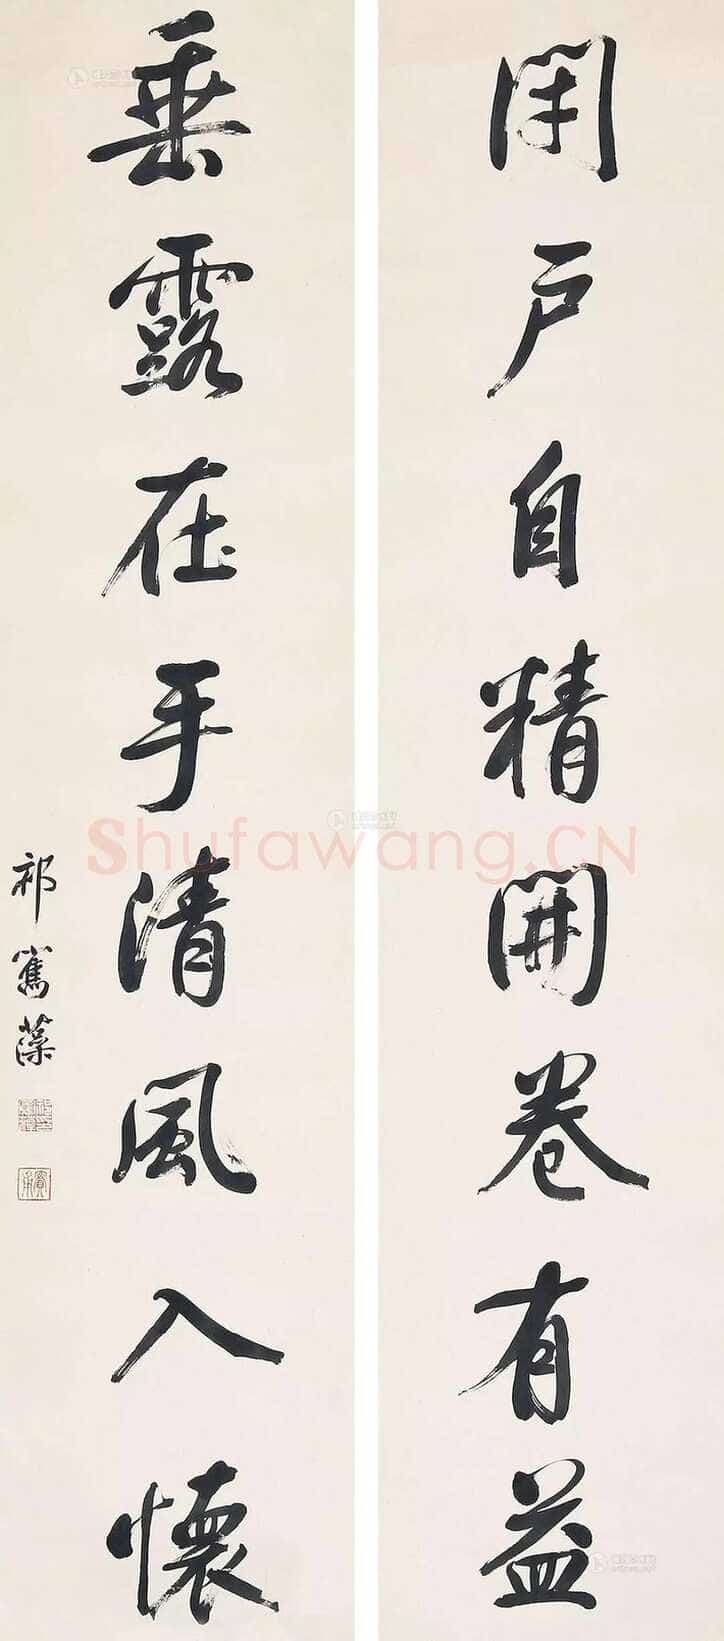 閉戶自精開卷有益
垂露在手清風入懷
祁寯藻
Shufawang.CN